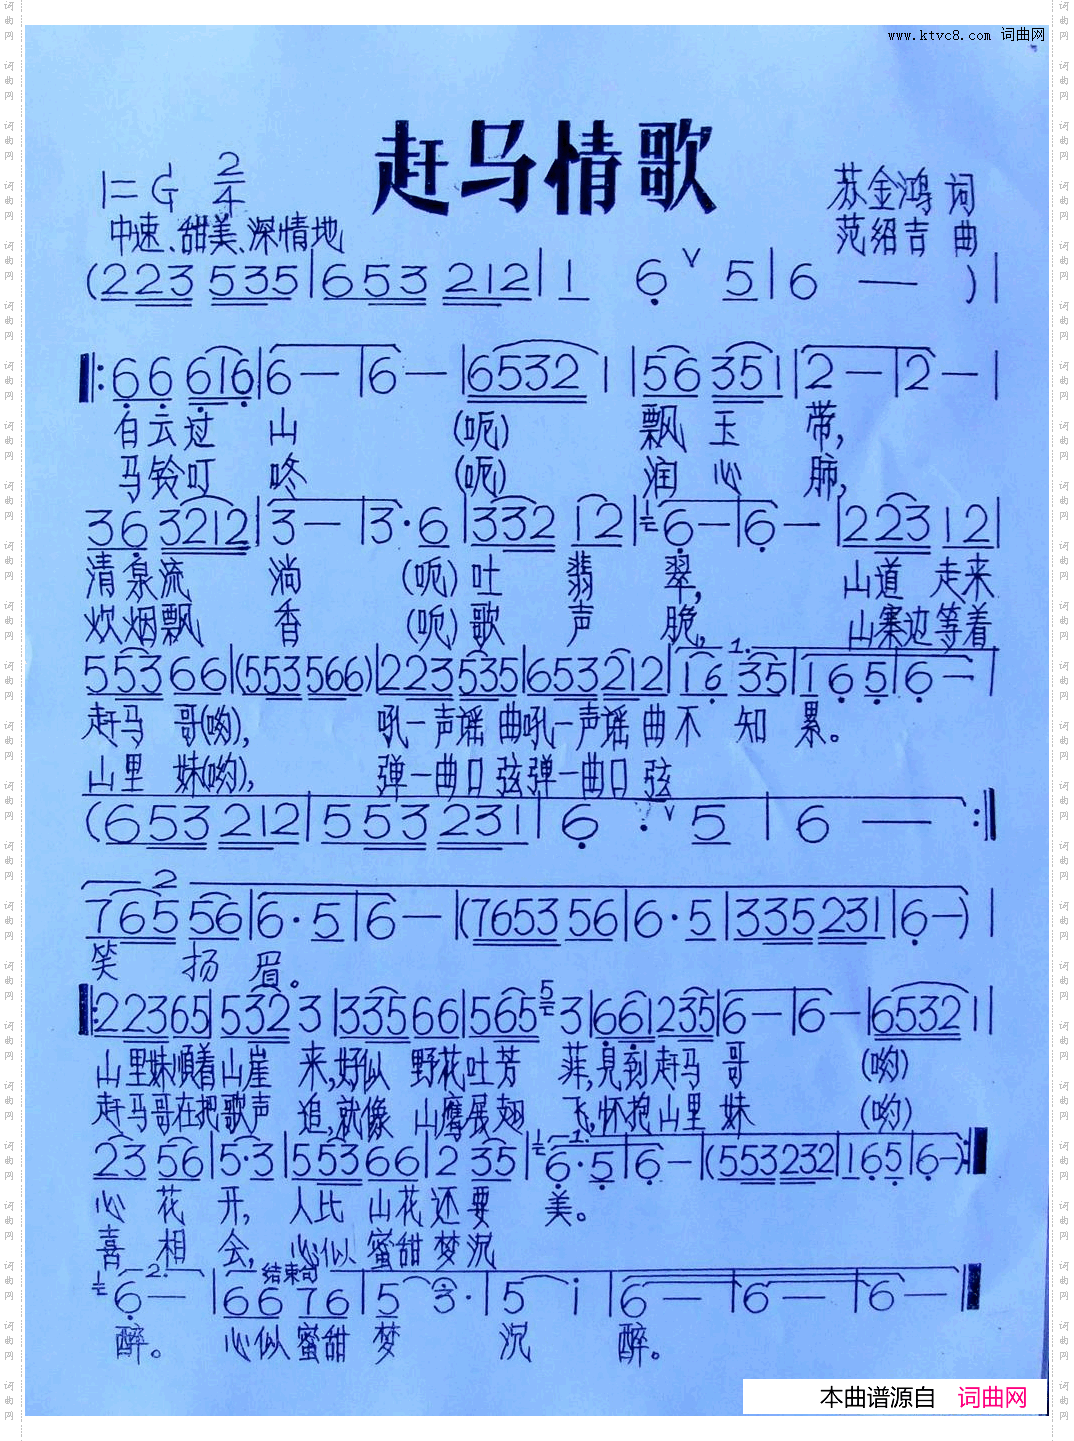 www.ktvc8.com 词曲网
赶马情歌
1=G 2/4
苏金鸿 词
中速、甜美、深情地
范绍吉 曲
(223 535|653 212|1 6 ∨ 5|6 — )|
‖: 66 616|6 — |6 — |6532 1|56 351|2 — |2 — |
白云过 山 (呃) 飘 玉 带,
马铃叮 咚 (呃) 润 心 肺,
36 3212|3 — |3·6|332 12|6 — |6 — |223 12|
清泉流 淌 (呃)吐 翡 翠, 山道 走来
炊烟飘 香 (呃)歌 声 脆, 山寨边等着
553 66|(553566)|223535|653212|16 35|165|6 — |
1.
赶马 哥(哟), 吼一声谣 曲吼一声谣 曲不 知 累。
山里 妹(哟), 弹一曲口 弦弹一曲口 弦
(653 212|553 231|6 · ∨ 5|6 — :‖
2
765 56|6·5|6 — |(7653 56|6·5|335231|6—)|
笑 扬 眉。
‖: 22365|532 3|33566|565 5 3|661235|6 — |6 — |6532 1|
山里妹順着山崖 来,好似 野花吐芳 菲,見到赶马 哥 (哟)
赶马哥在把歌声 追,就像 山鹰展翅 飞,怀抱山里 妹 (哟)
23 56|5·3|553 66|2 35|6·5|6—|(553232|165|6—):‖
1.
心 花 开, 人比 山花还要 美。
喜 相 会, 心似 蜜甜梦沉
2. 结束句
6 — |66 76|5 3·|5 i|6 — |6 — |6 — ‖
醉。 心似蜜甜 梦 沉 醉。
本曲谱源自 词曲网